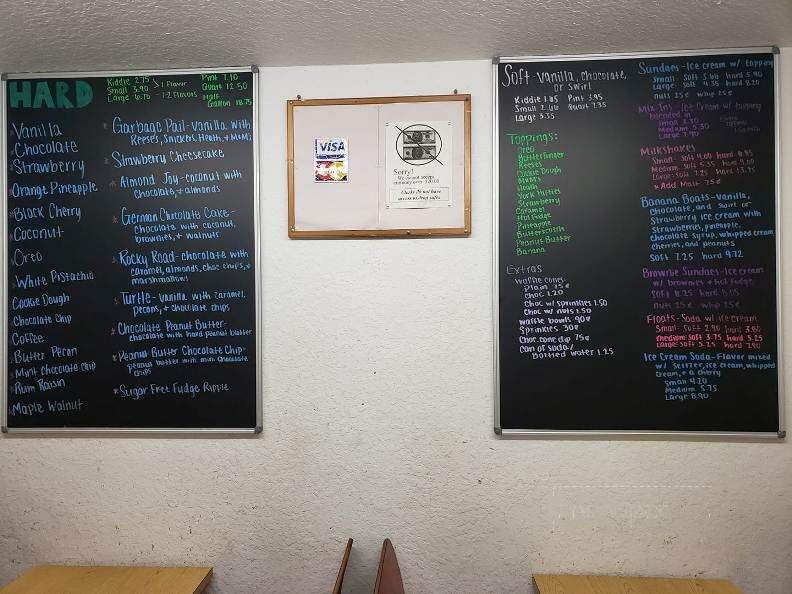 HARD
Kiddie 2.75
Small 3.90 > 1 Flavor
Large 6.70 > 1-2 Flavors
Pint 7.10
Quart 12.50
Half
Gallon 18.75
Vanilla
Chocolate
Strawberry
Orange Pineapple
Black Cherry
Coconut
Oreo
White Pistachio
Cookie Dough
Chocolate Chip
Coffee
Butter Pecan
Mint Chocolate Chip
Rum Raisin
Maple Walnut
Garbage Pail-vanilla with
Reeses, Snickers, Heath, + M&Ms
Strawberry Cheesecake
Almond Joy-coconut with
chocolate, + almonds
German Chocolate Cake-
chocolate with coconut,
brownies, + walnuts
Rocky Road-chocolate with
caramel, almonds, choc chips, +
marshmallow
Turtle-vanilla with caramel,
pecans, + chocolate chips
Chocolate Peanut Butter-
chocolate with hard peanut butter
Peanut Butter Chocolate Chip-
peanut butter with mini chocolate
chips
Sugar Free Fudge Ripple
VISA
Sorry!
We cannot accept
Checks do not have
access to drop safes
Soft-Vanilla, Chocolate,
or Swirl
Kiddie 1.85 Pint 3.95
Small 2.60 Quart 7.35
Large 3.35
Toppings:
Oreo
Butterfinger
Reeses
Cookie Dough
M&Ms
Heath
York Patties
Strawberry
Caramel
Hot Fudge
Pineapple
Butterscotch
Peanut Butter
Banana
Extras
Waffle cones
Plain 75¢
Choc 1.20
Choc w/ sprinkles 1.50
Choc w/ nuts 1.50
Waffle bowls 90¢
Sprinkles 30¢
Choc cone dip 75¢
Can of soda/
Bottled water 1.25
Sundaes-Ice cream w/ topping
Small: Soft hard 5.90
Large: Soft 4.35 hard 8.20
nuts 25¢ whip 25¢
Mix Ins-Ice Cream w/ topping
blended in
Small
Medium 5.30
Large 7.90
Milkshakes
Small: Soft 4.00 hard
Medium: Soft 5.35 hard
Large: Soft 7.25 hard
* Add Malt 75¢
Banana Boats-Vanilla,
chocolate, and swirl or
Strawberry ice cream with
Strawberries, pineapple,
chocolate syrup, whipped cream
cherries, and peanuts
Soft 7.25 hard 9.72
Brownie Sundaes-Ice cream
w/ brownies + hot fudge
Soft 6.25 hard
nuts 25¢ whip 25¢
Floats-Soda w/ ice cream
Small: Soft 2.90 hard
Medium: Soft 3.75 hard 5.25
Large: Soft 5.25 hard 7.90
Ice Cream Soda-Flavor mixed
w/ seltzer, ice cream, whipped
cream, + a cherry
Small 4.20
Medium 5.75
Large 8.90